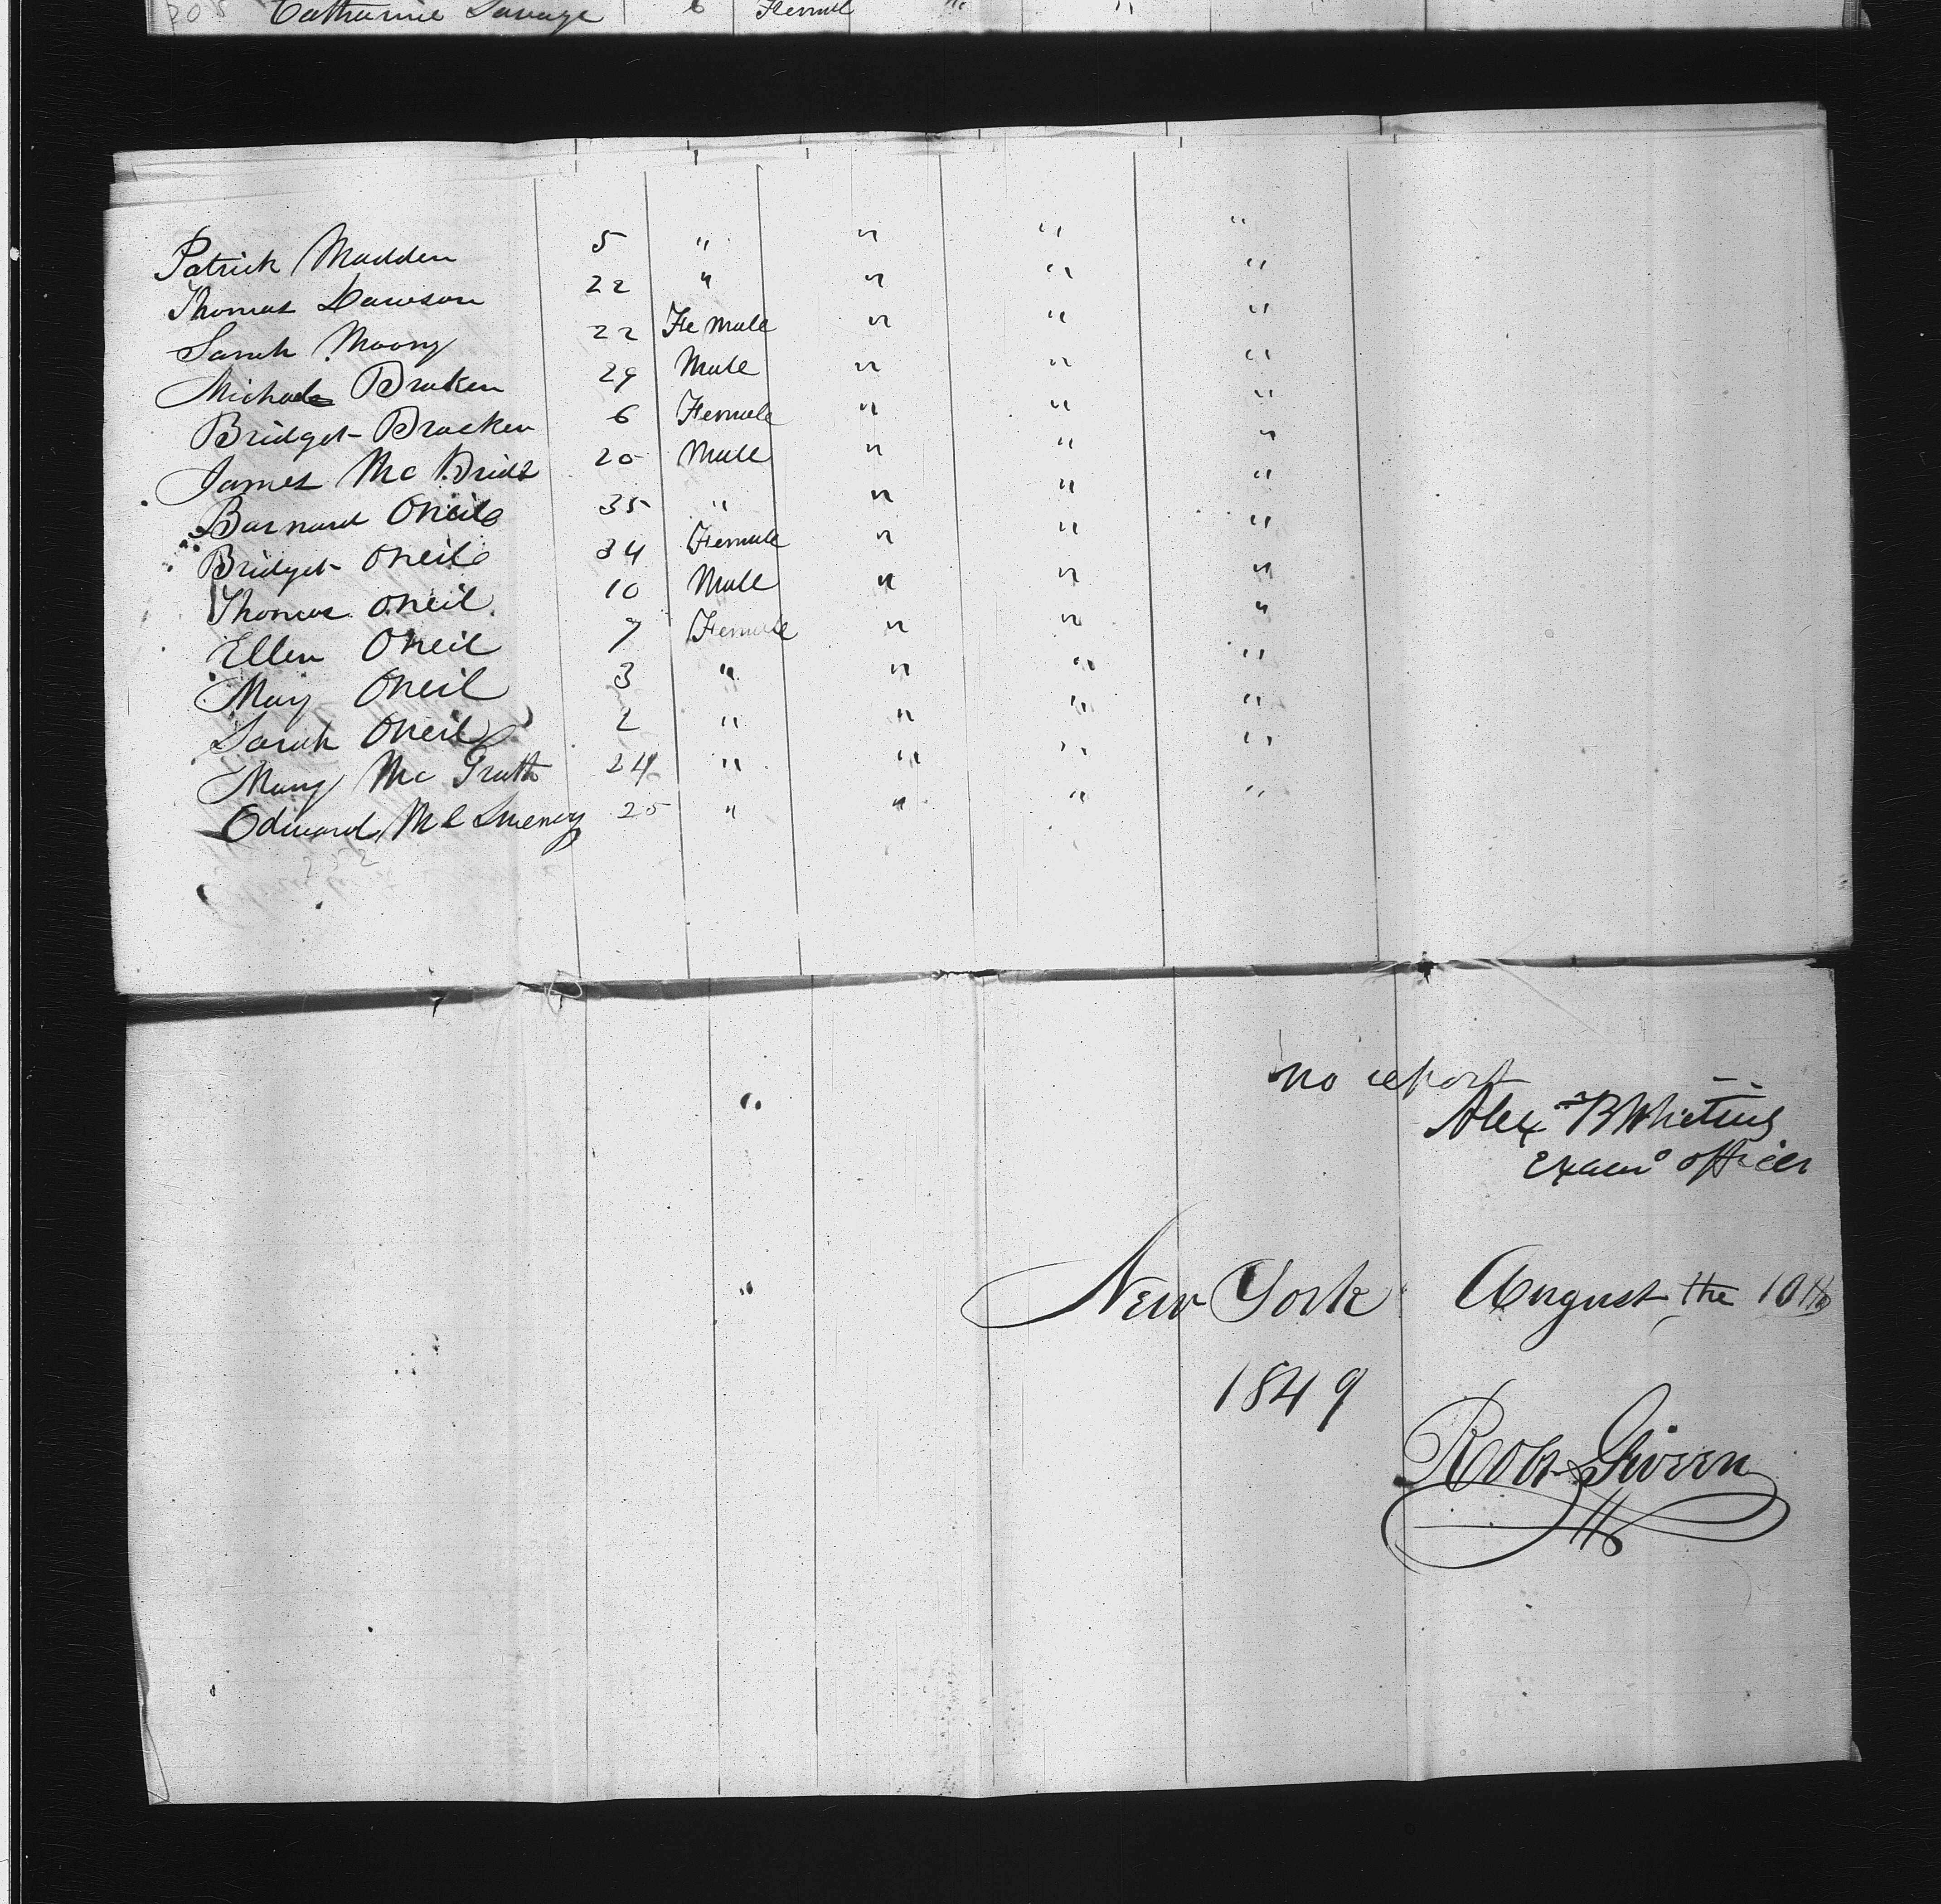 205 Catharine Savage 6 Female " "
Patrick Madden 5 " " " "
Thomas Dawson 22 " " " "
Sarah Moony 22 Fe male " " "
Michael Braken 29 Male " " "
Bridget Bracken 6 Female " " "
James Mc Bride 20 Male " " "
Barnard ONeile 35 " " " "
Bridget ONeile 34 Female " " "
Thomas ONeil 10 Male " " "
Ellen ONeil 7 Female " " "
Mary ONeil 3 " " " "
Sarah ONeil 2 " " " "
Mary Mc Grath 24 " " " "
Edward Mc Sweney 25 " " " "
252
no report
"
Alexr B Whiting
Examo officer
" New York August the 10th
1849
Robt Givern